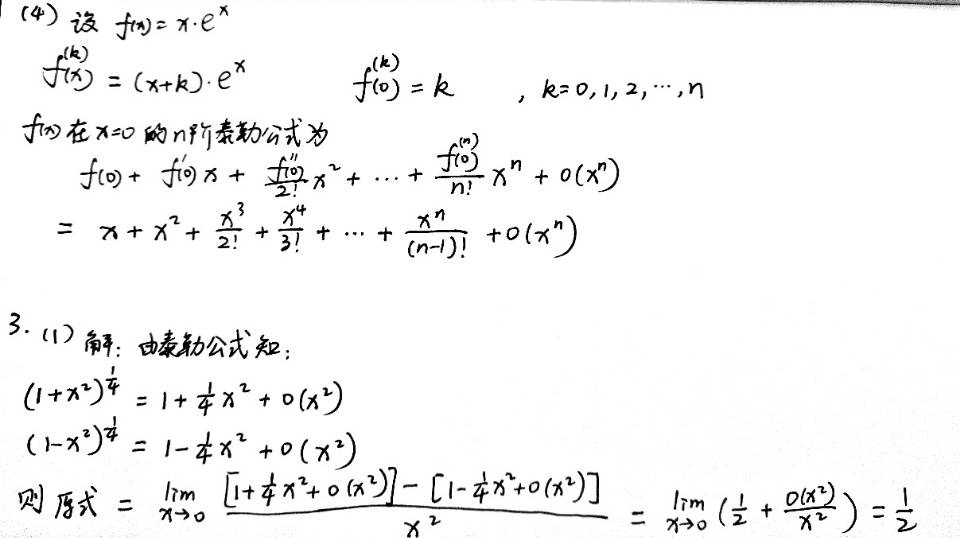 (4) 设 f(x) = x·e^x
f^(k)(x) = (x+k)·e^x f^(k)(0) = k , k=0,1,2,…,n
f(x)在x=0的n阶泰勒公式为
f(0) + f'(0)x + f''(0)/2! x² + … + f^(n)(0)/n! x^n + o(x^n)
= x + x² + x³/2! + x⁴/3! + … + x^n/(n-1)! + o(x^n)
3. (1) 解: 由泰勒公式知:
(1+x²)^(1/4) = 1 + 1/4 x² + o(x²)
(1-x²)^(1/4) = 1 - 1/4 x² + o(x²)
则原式 = lim x→0 [1+1/4 x²+o(x²)] - [1-1/4 x²+o(x²)] / x² = lim x→0 (1/2 + o(x²)/x²) = 1/2